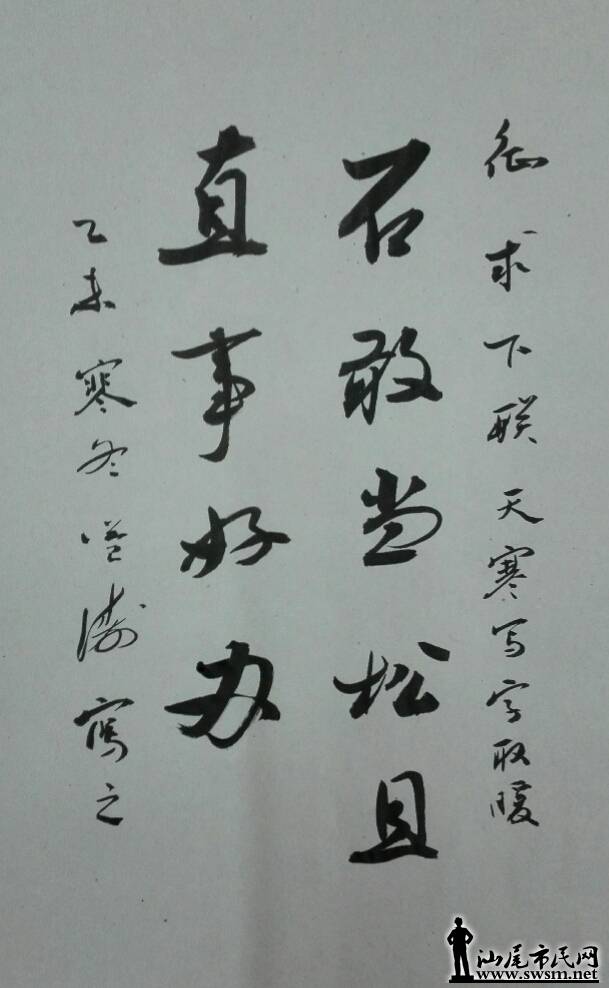 征求下联天寒写字取暖
石敢当松且
直事好办
乙未寒冬 涛写之
汕尾市民网
www.swsm.net